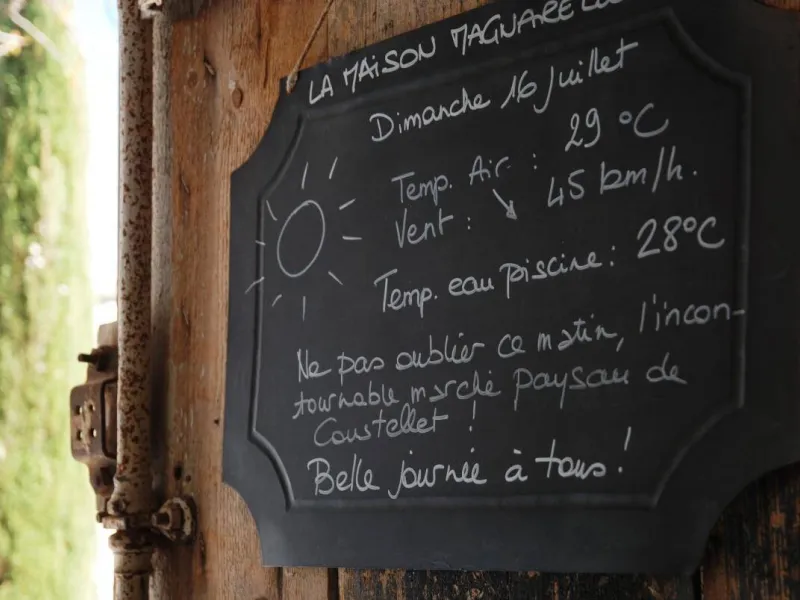 LA MAISON MAGNARELLO
Dimanche 16 Juillet
Temp. Air : 29 °C
Vent : ↘ 45 km/h.
Temp. eau piscine : 28°C
Ne pas oublier ce matin, l'incon-
tournable marché paysan de
Coustellet !
Belle journée à tous !